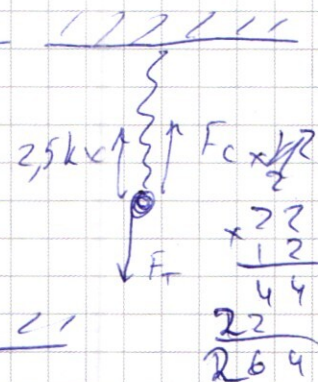 2,5kx
Fc
Fт
22
x 12
44
22
264